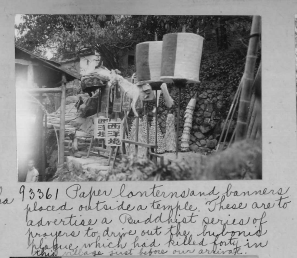 93361 Paper lanterns and banners
placed outside a temple. These are to
advertise a Buddhist series of
prayers to drive out the bubonic
plague which had killed forty in
this village just before our arrival.